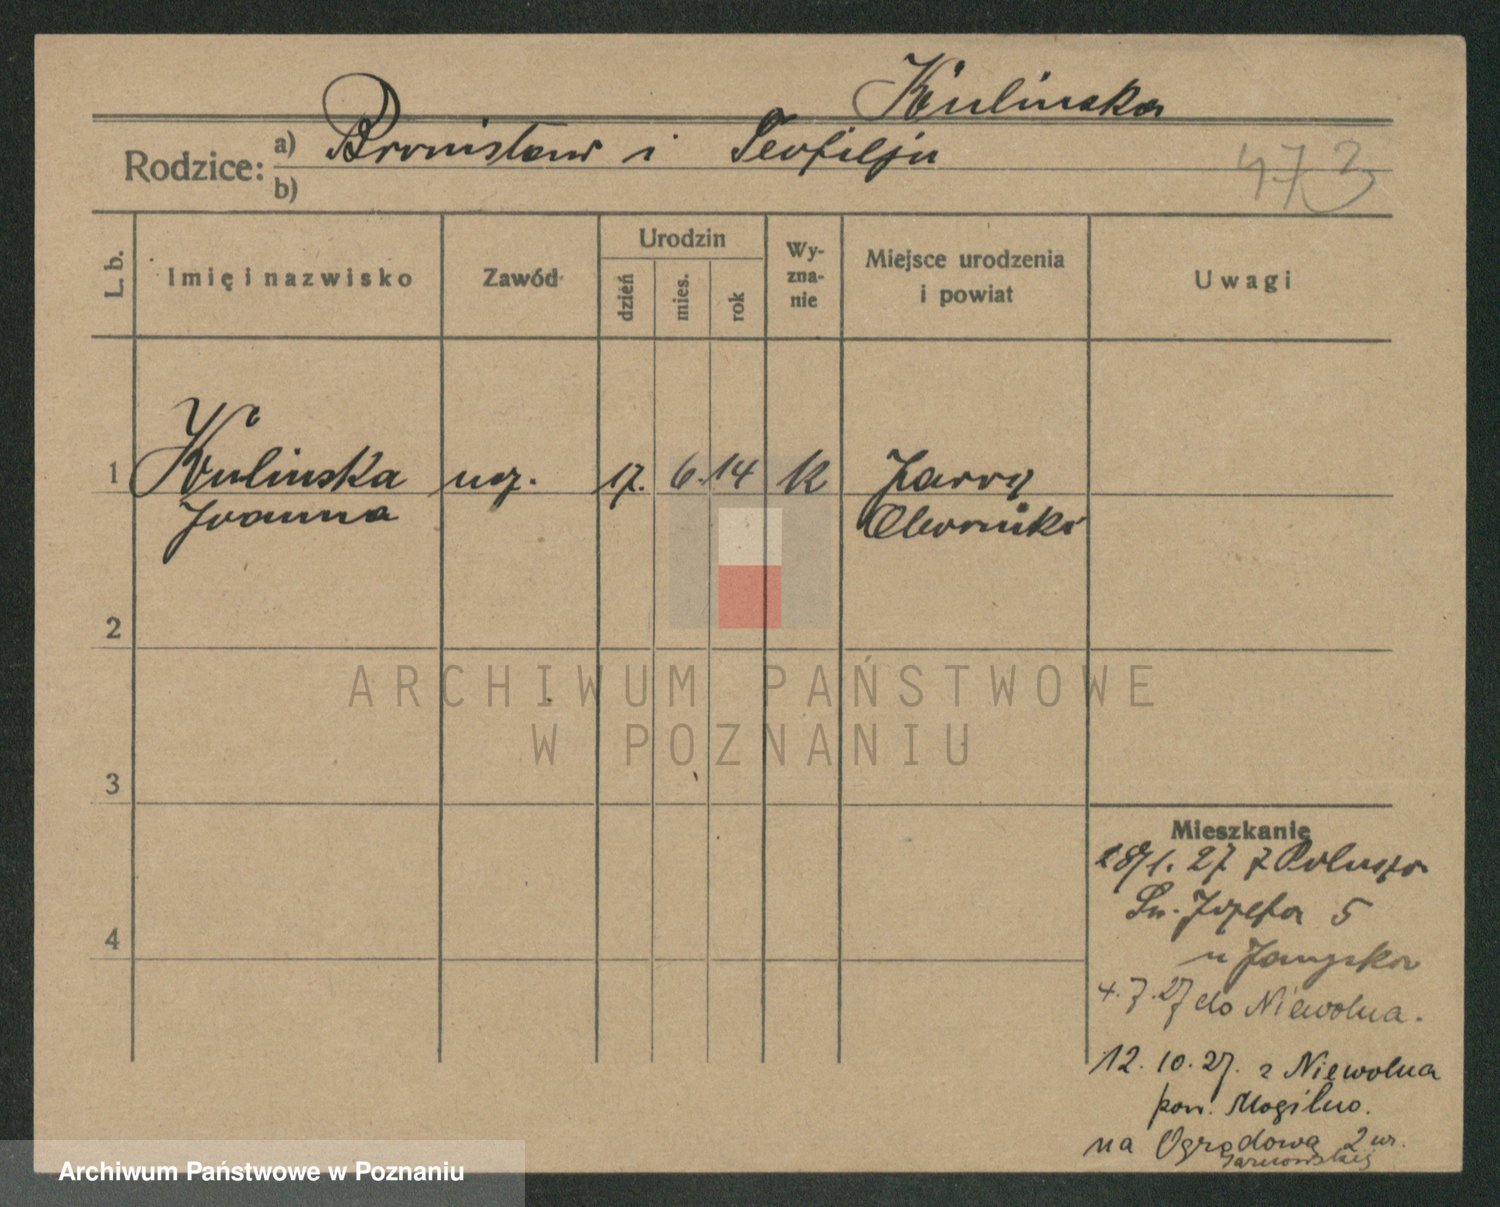 Kulinska
Rodzice: a) Bronisław i Teofilja
b)
473
L. b.
Imię i nazwisko
Zawód
Urodzin
dzień
mies.
rok
Wy-
zna-
nie
Miejsce urodzenia
i powiat
Uwagi
1 Kulinska ucz. 17. 6. 14 K
Joanna Oborniki
2
3
4
ARCHIWUM PAŃSTWOWE
W POZNANIU
Mieszkanie
28/1. 27 z
Św. Józefa 5
u
4.7.27 do Niewolna.
12. 10. 27. z Niewolna
pow. Mogilno.
na Ogrodową 2 w.
Archiwum Państwowe w Poznaniu